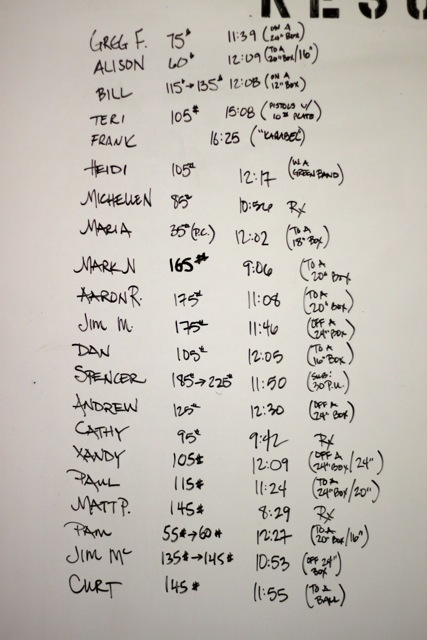 GREGG F. 75# 11:39 (ON A 20" BOX)
ALISON 60# 12:09 (TO A 20" BOX/16")
BILL 115#→135# 12:08 (ON A 12" BOX)
TERI 105# 15:08 (PISTOLS W/ 10# PLATE)
FRANK 16:25 ("KARABEL")
HEIDI 105# 12:17 (W. A GREEN BAND)
MICHELLEN 85# 10:56 RX
MARIA 35# (P.C.) 12:02 (TO A 18" BOX)
MARK N 165# 9:06 (TO A 20" BOX)
AARON R. 175# 11:08 (TO A 20" BOX)
JIM M. 175# 11:46 (OFF A 24" BOX)
DAN 105# 12:05 (TO A 16" BOX)
SPENCER 185#→225# 11:50 (SUB: 30 P.U.)
ANDREW 125# 12:30 (OFF A 24" BOX)
CATHY 95# 9:42 RX
XANDY 105# 12:09 (OFF A 24" BOX/24")
PAUL 115# 11:24 (TO A 24" BOX/20")
MATT P. 145# 8:29 RX
PAM 55#→60# 12:27 (TO A 20" BOX/16")
JIM Mc 135#→145# 10:53 (OFF 24" BOX)
CURT 145# 11:55 (TO A BALL)